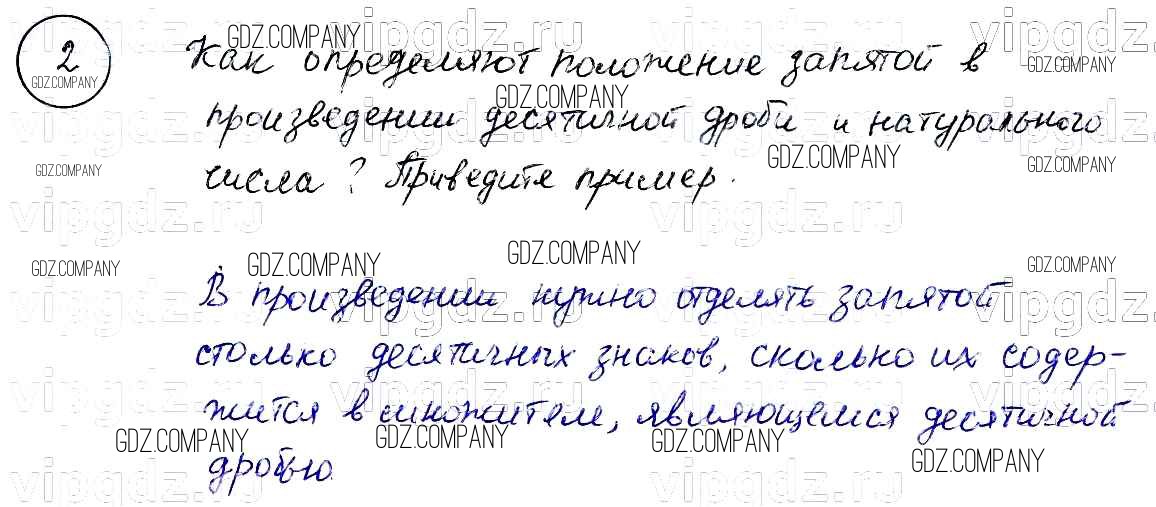 2
Как определяют положение запятой в
произведении десятичной дроби и натурального
числа? Приведите пример.
В произведении нужно отделять запятой
столько десятичных знаков, сколько их содер-
жится в множителе, являющемся десятичной
дробью.
GDZ.COMPANY
vipgdz.ru